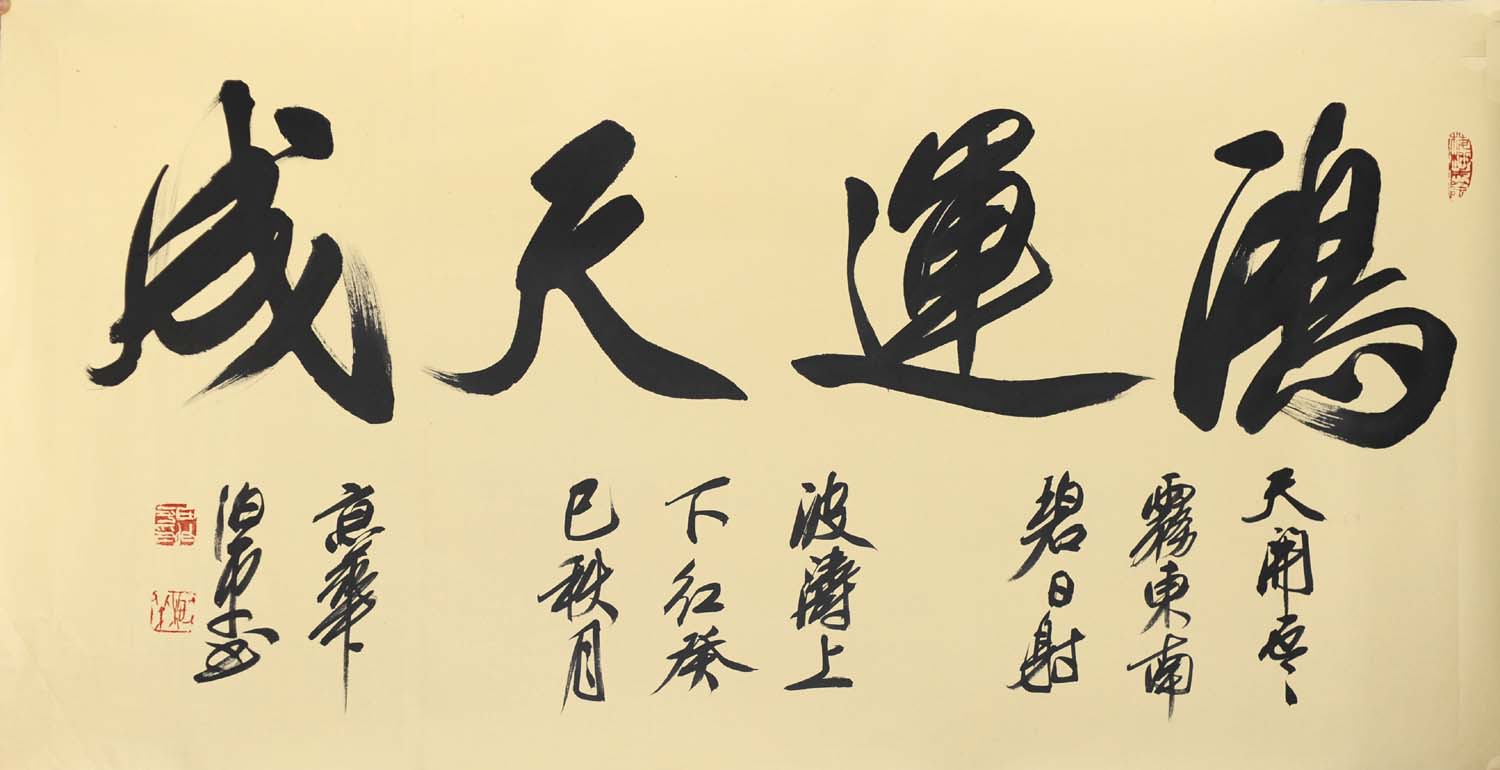 鴻運天成
天開雲
霧東南
碧日射
波濤上
下紅癸
巳秋月
京華
书